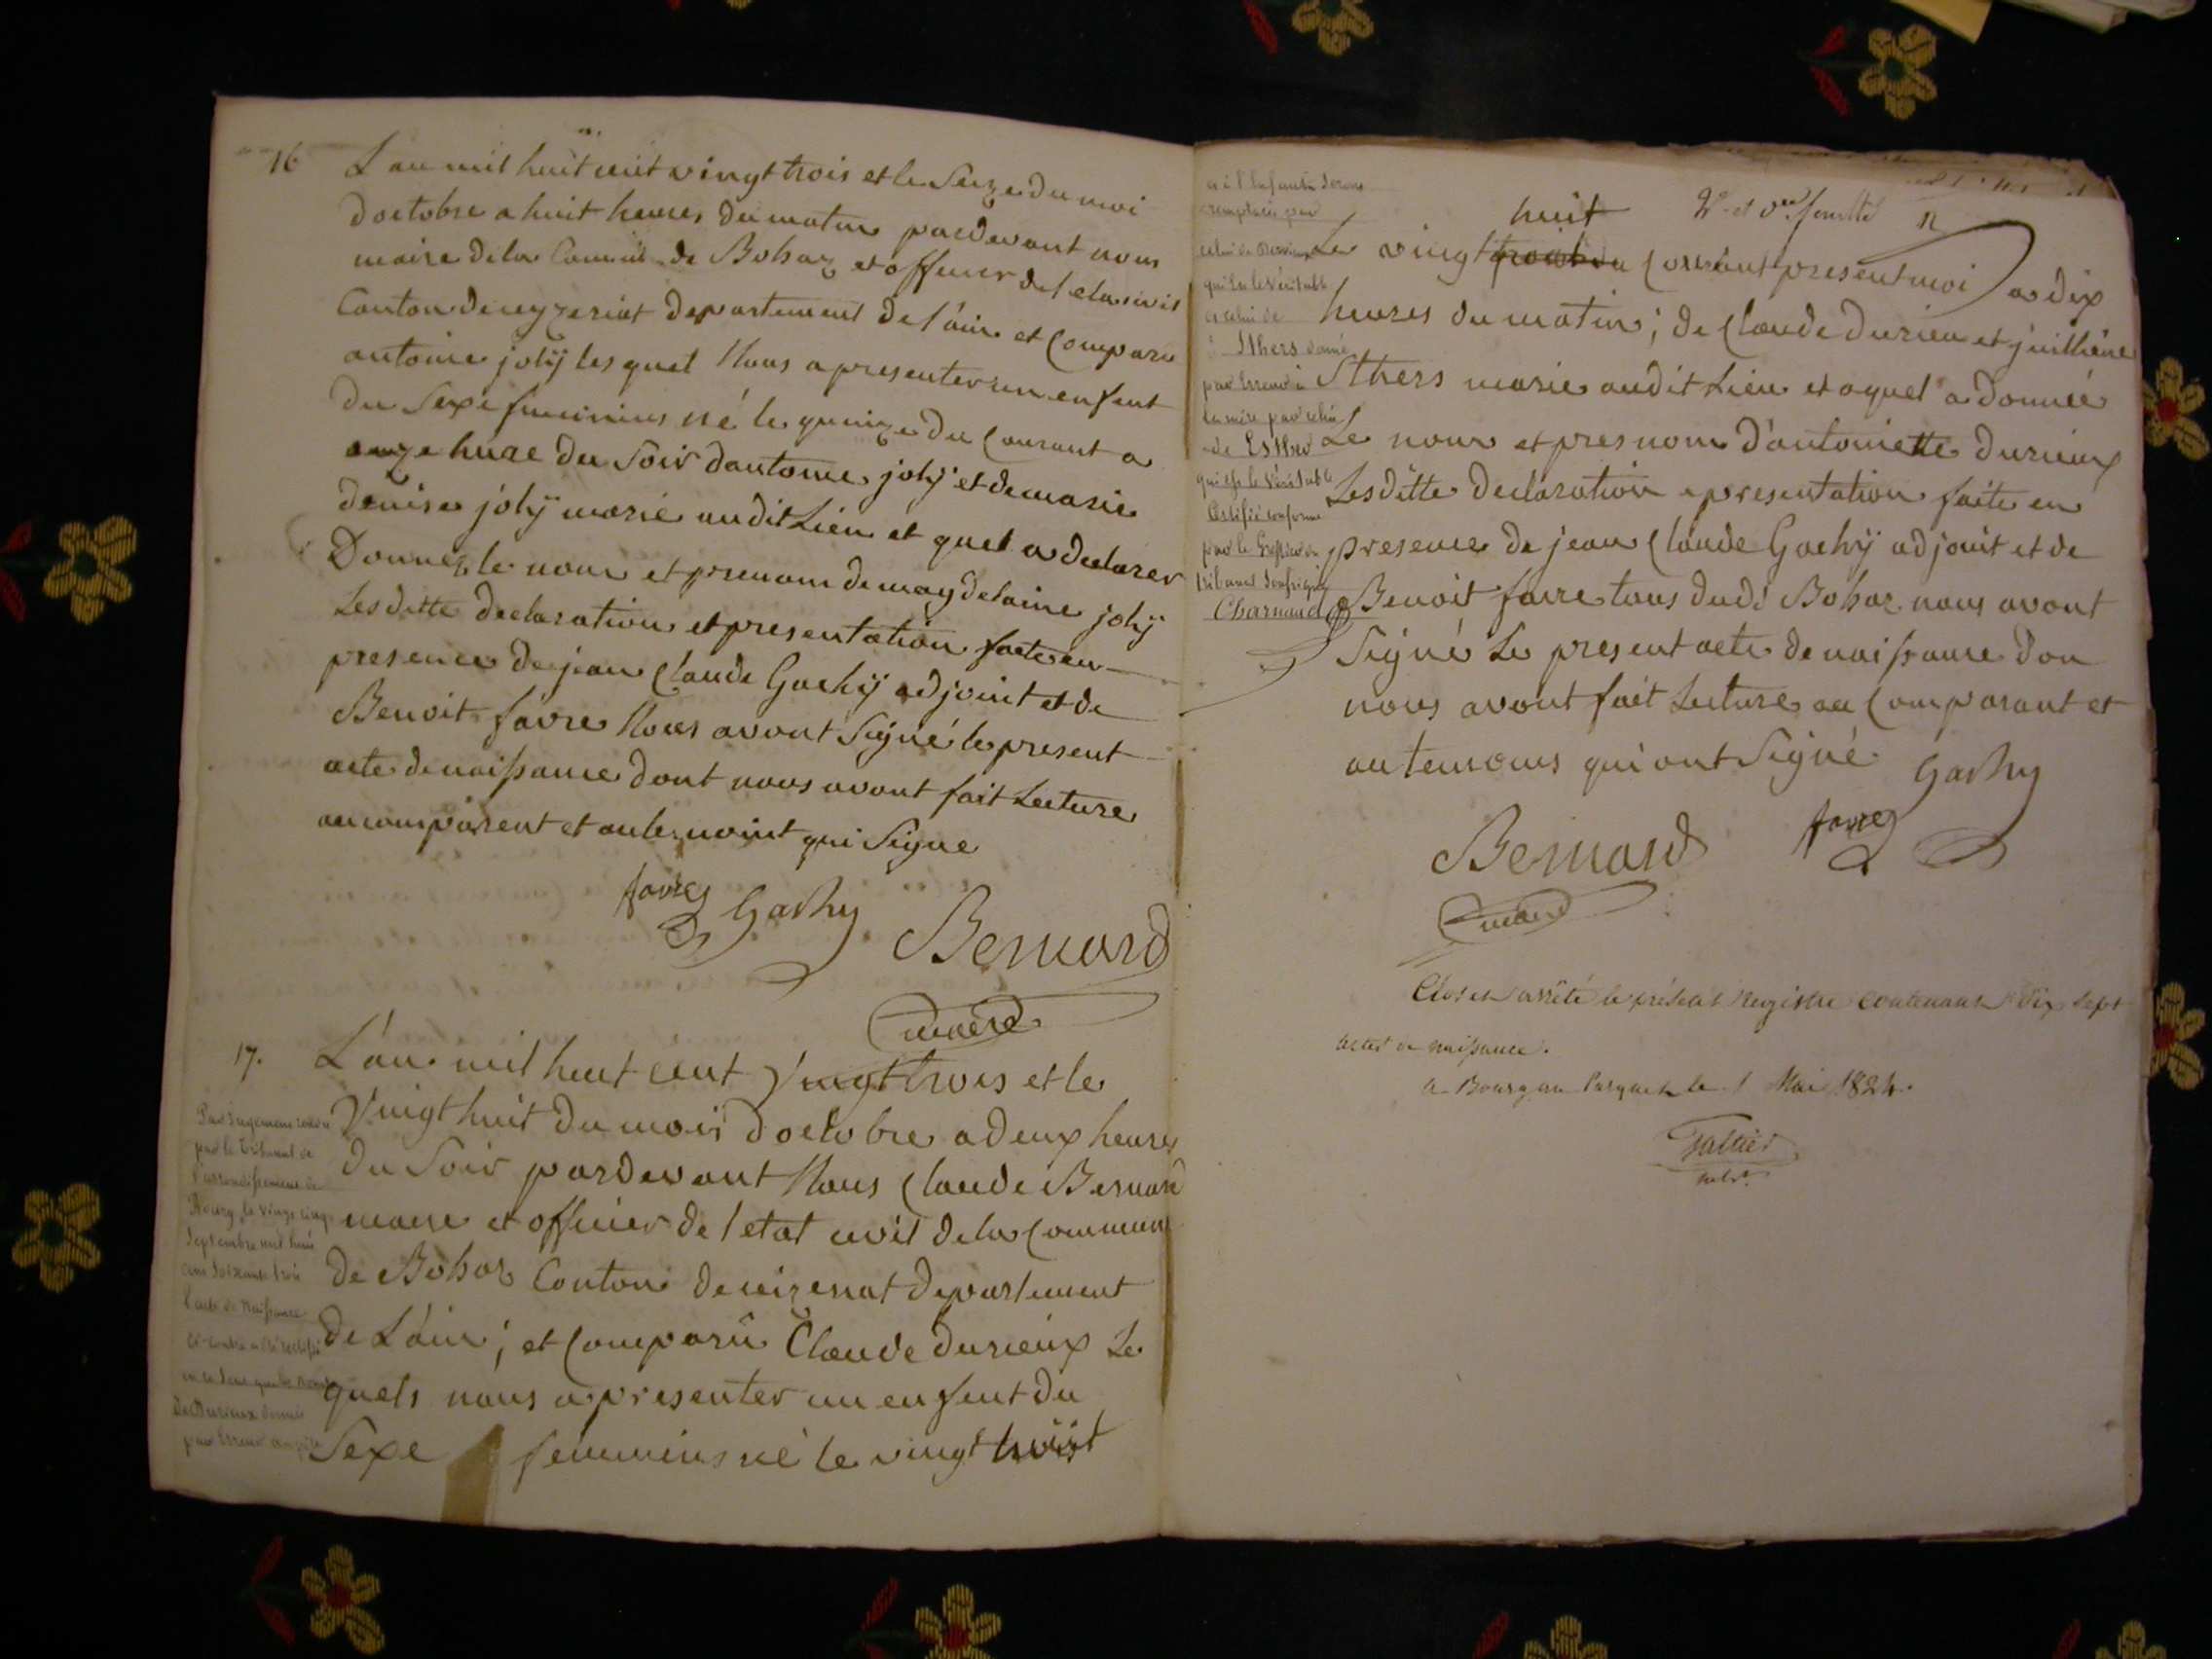 16 L'an mil huit cent vingt trois et le Seize du moi
d'octobre a huit heures du matin pardevant nous
maire de la Commune de Bohaz et officier de l'etat sivil
Canton de ceyzeriat departement de l'ain et Comparu
antoine jolÿ les quel Nous a presenter un enfent
du Sexe feminins né le quinze du Courant a
onze hure du Soir d'antoine jolÿ et de marie
denise jolÿ marié au dit Lieu et quel a declarer
Donner le nom et prenom de magdelaine jolÿ
Les ditte declaration et presentation faite en
presence de jean Claude Gachÿ adjoint et de
Benoit favre Nous avont Signé le present
acte de naissance dont nous avont fait Lecture
au comparent et au temoint qui Signe
favre Gachy Bernard
maire
17. L'an mil huit cent Vingt trois et le
Vingt huit du mois d'octobre a deux heures
du Soir pardevant Nous Claude Bernard
maire et officier de l'etat civil de la Commune
de Bohaz Canton de ceizeriat departement
de L'ain; et Comparû Claude durieux Le
quels nous a presenter un enfent du
Sexe feminins né le vingt huit
Par Jugement rendu
par le Tribunal de
l'arrondissement de
Bourg, le vingt cinq
Septembre mil huit
cent soixante trois
l'acte de Naissance
ci-contre a été rectifié
en ce sens que le nom
de Durieux donné
par Erreur au père
et à l'Enfant Seront
remplacés par
celui de
qui est le véritable
et celui de
Sthers donné
par Erreur à
la mère par celui
de Esther
qui est le véritable
Certifié conforme
par le Greffier du
tribunal Soussigné
Charnaud
2e et der feuillet 12
huit
Le vingt Courant present moi a dix
heures du matin; de Claude durieu et juilliene
Sthers marie audit Lieu et aquel a donneé
Le nom et pres nom d'antoinette durieux
Lesditte declaration epresentation faite en
presence de jean Claude Gachÿ adjouit et de
Benoit favre tous dudi Bohaz nous avont
Signé Le present acte de naissance don
nous avont fait Lecture au Comparant et
au temoins qui ont Signé Gachy
Bernard favre
maire
Clos et arrêté le présent Registre contenant dix sept
actes de naissance.
a Bourg au Parquet le 1 Mai 1824.